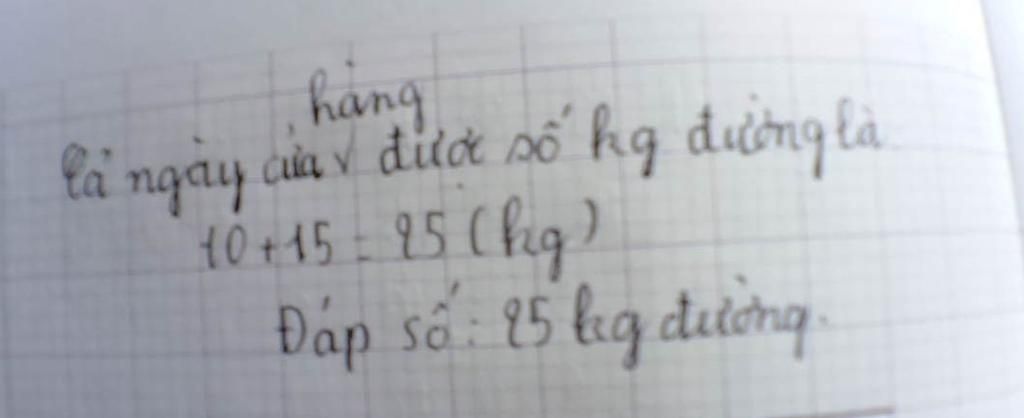 hàng
Cả ngày cửa v được số kg đường là
10 + 15 = 25 (kg)
Đáp số: 25 kg đường.